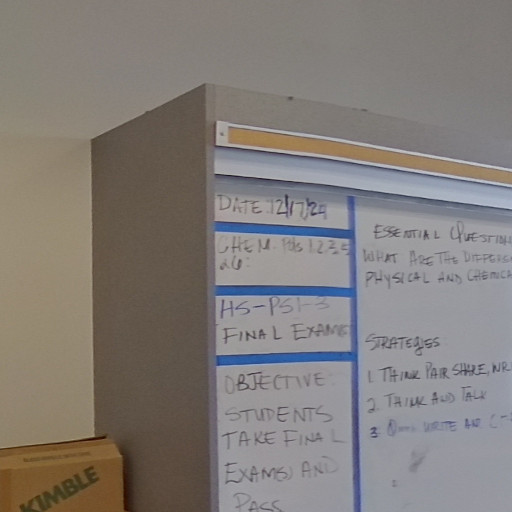 DATE: 12/17/24
CHEM. Pds 1,2,3,5
&6:
HS-PS1-3
FINAL EXAMS
OBJECTIVE:
STUDENTS
TAKE FINAL
EXAMS AND
PASS
ESSENTIAL QUESTION
WHAT ARE THE DIFFEREN
PHYSICAL AND CHEMICA
STRATEGIES
1. THINK PAIR SHARE, WRI
2. THINK AUD TALK
3. WRITE AND
KIMBLE